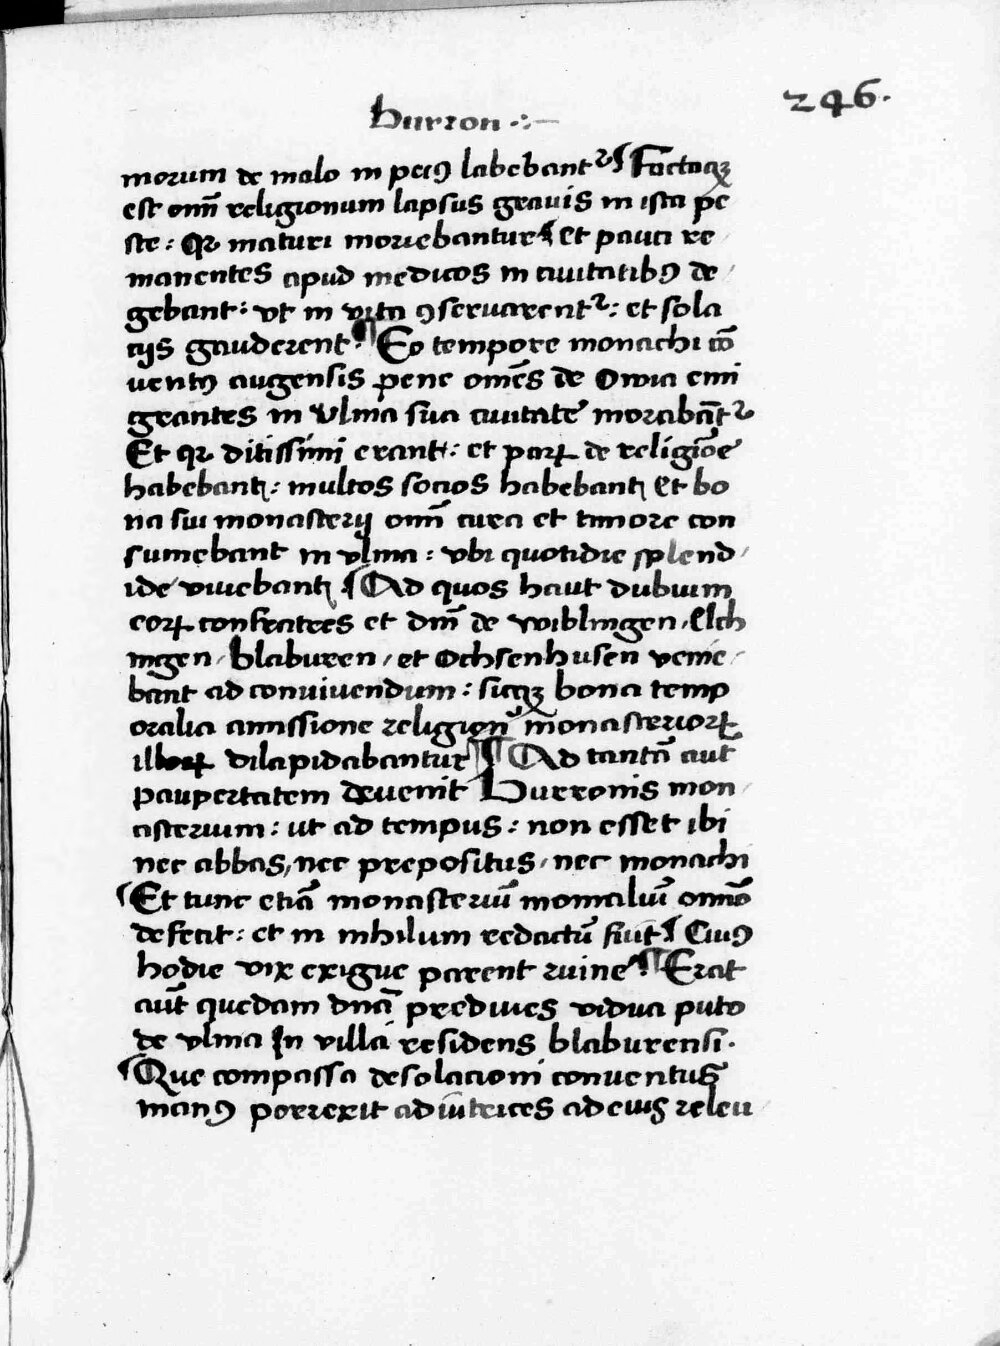 246.
Burron .:—
morum de malo in peiꝰ labebantᷣ ¶ Factaqꝫ
est om̅i religionum lapsus grauis in ista pe
ste : Qꝛ maturi moriebantur ¶ et pauci re
manentes apud medicos in ciuitatibꝰ de
gebant : vt in vita ꝯseruarentᷣ : et sola
cijs gauderent . ¶ Eo tempore monachi co̅
uentꝰ augensis pene om̅es de Owia emi
grantes in Vlma sua ciuitate moraba̅tᷣ
Et qꝛ ditissimi erant : et parꝝ de religio̅e
habebant : multos socios habebant Et bo
na sui monasterij om̅i cura et timore con
sumebant in vlma : vbi quotidie splend
ide viuebant ¶ Ad quos haut dubium
eorꝝ confratres et dn̅i de wiblingen , Elch
ingen , blaburen , et Ochsenhusen venie
bant ad conuiuendum : sicqꝫ bona temp
oralia amissione religionꝰ monasteriorꝝ
illorꝝ dilapidabantur ¶ Ad tanta̅ aut
paupertatem deuenit Burronis mon
asterium : ut ad tempus : non esset ibi
nec abbas, nec prepositus, nec monachi
¶ Et tunc etia̅ monasteriu̅ monialiu̅ omnino
defecit : et in nihilum redactu̅ fiu̅t ¶ Cuiꝰ
hodie vix exigue parent ruine ¶ Erat
aut̅ quedam dn̅a predives vidua puto
de vlma In villa residens blaburensi .
¶ Que compassa desolacioni conuentus
manꝰ porrexit adiutrices ad eius releu